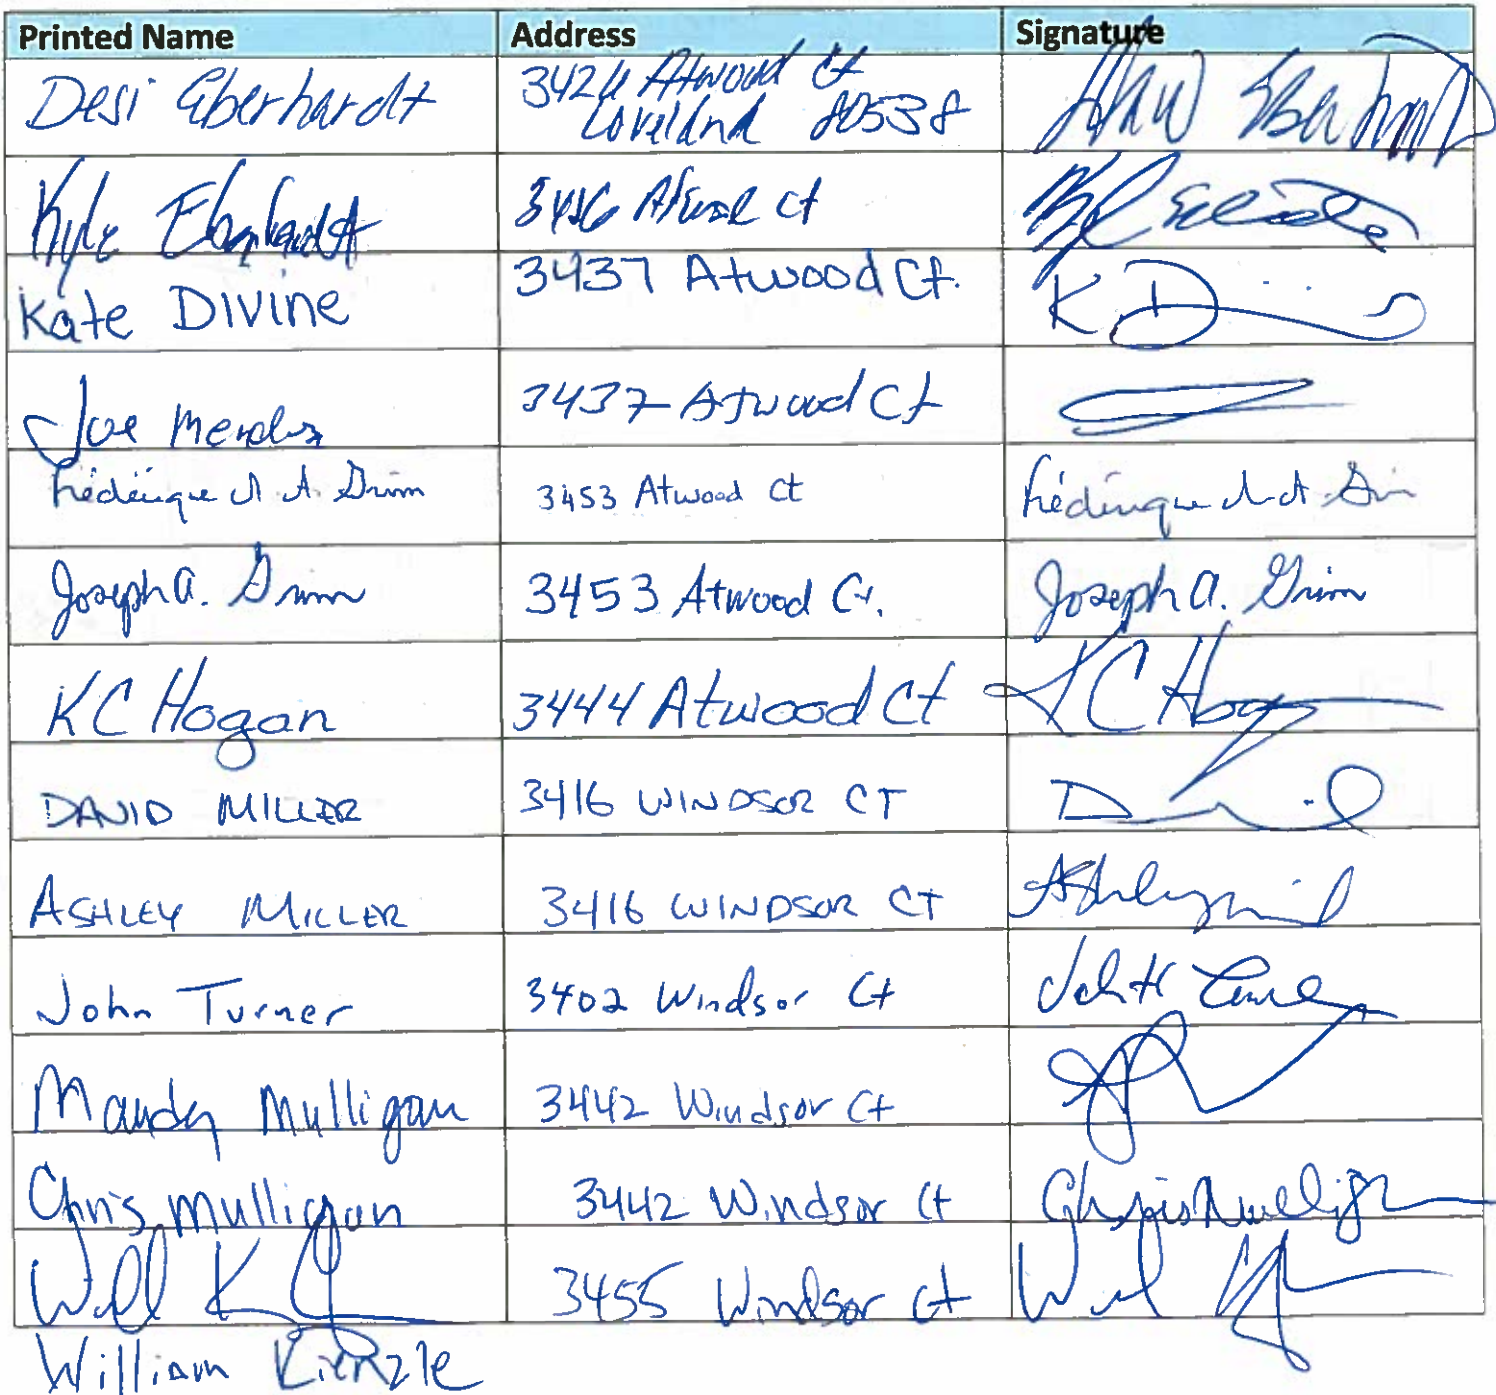 Printed Name Address Signature
Desi Eberhardt 3426 Atwood Ct
Loveland 80538
Kyle Eberhardt 3426 Atwood Ct
Kate Divine 3437 Atwood Ct. K D
Joe 3437 Atwood Ct
Frédérique A. Grim 3453 Atwood Ct Frédérique
Joseph A. Grim 3453 Atwood Ct. Joseph A. Grim
KC Hogan 3444 Atwood Ct KC Hogan
DAVID MILLER 3416 WINDSOR CT
ASHLEY MILLER 3416 WINDSOR CT Ashley
John Turner 3402 Windsor Ct
Mandy Mulligan 3442 Windsor Ct
Chris Mulligan 3442 Windsor Ct Chris Mulligan
Will K 3455 Windsor Ct Will
William Kienzle